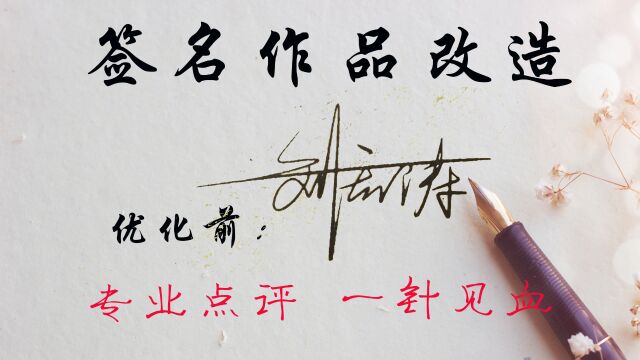 签名作品改造
优化前：
专业点评 一针见血